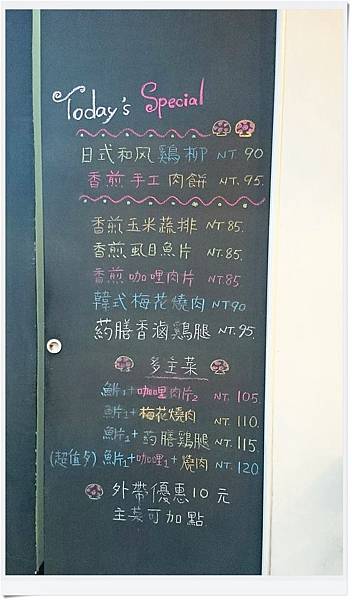 Today's Special
日式和风鷄柳 NT. 90
香煎手工肉餅 NT. 95.
香煎玉米蔬排 NT 85.
香煎虱目魚片 NT. 85.
香煎咖哩肉片 NT. 85
韓式梅花燒肉 NT 90
葯膳香滷鷄腿 NT. 95.
多主菜
魚片1+咖哩肉片2 NT. 105.
魚片1+梅花燒肉 NT. 110.
魚片1+葯膳鷄腿 NT. 115
(超值多) 魚片1+咖哩1+燒肉 NT. 120
外帶優惠10元
主菜可加點